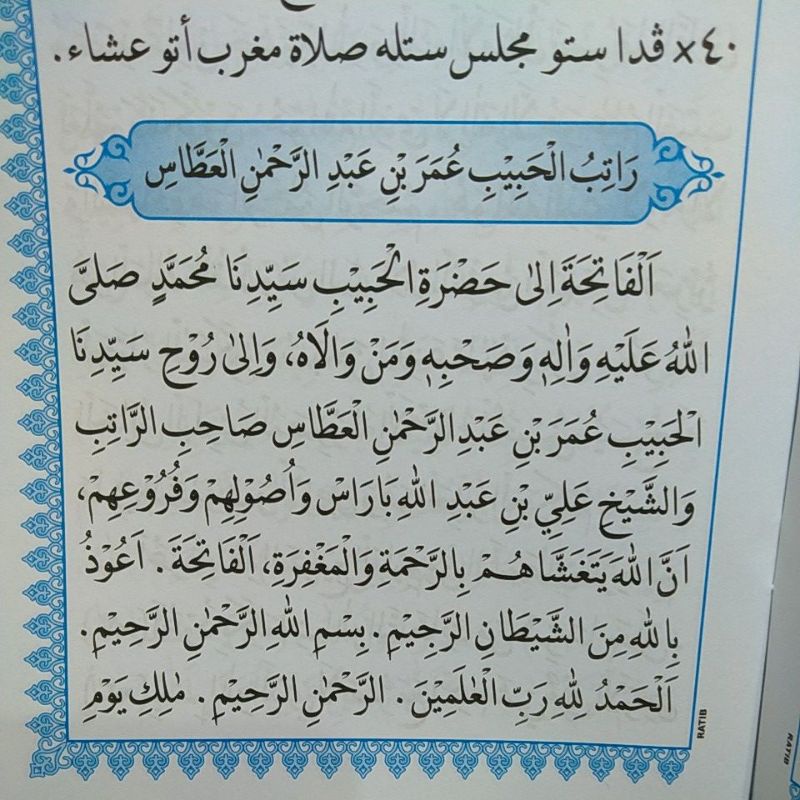 ×٤٠ ڤدا ستو مجلس ستله صلاة مغرب أتو عشاء.
رَاتِبُ الْحَبِيْبِ عُمَرَ بْنِ عَبْدِ الرَّحْمٰنِ الْعَطَّاسِ
اَلْفَاتِحَةَ اِلىٰ حَضْرَةِ الْحَبِيْبِ سَيِّدِنَا مُحَمَّدٍ صَلىَّ
اللهُ عَلَيْهِ وَاٰلِهٖ وَصَحْبِهٖ وَمَنْ وَالَاهُ، وَاِلىٰ رُوْحِ سَيِّدِنَا
الْحَبِيْبِ عُمَرَ بْنِ عَبْدِ الرَّحْمٰنِ الْعَطَّاسِ صَاحِبِ الرَّاتِبِ
وَالشَّيْخِ عَلِيِّ بْنِ عَبْدِ اللهِ بَارَاسْ وَاُصُوْلِهِمْ وَفُرُوْعِهِمْ،
اَنَّ اللهَ يَتَغَشَّاهُمْ بِالرَّحْمَةِ وَالْمَغْفِرَةِ، اَلْفَاتِحَةَ. اَعُوْذُ
بِاللهِ مِنَ الشَّيْطَانِ الرَّجِيْمِ. بِسْمِ اللهِ الرَّحْمٰنِ الرَّحِيْمِ.
اَلْحَمْدُ لِلّٰهِ رَبِّ الْعٰلَمِيْنَ. الرَّحْمٰنِ الرَّحِيْمِ. مٰلِكِ يَوْمِ
RATIB
RATIB